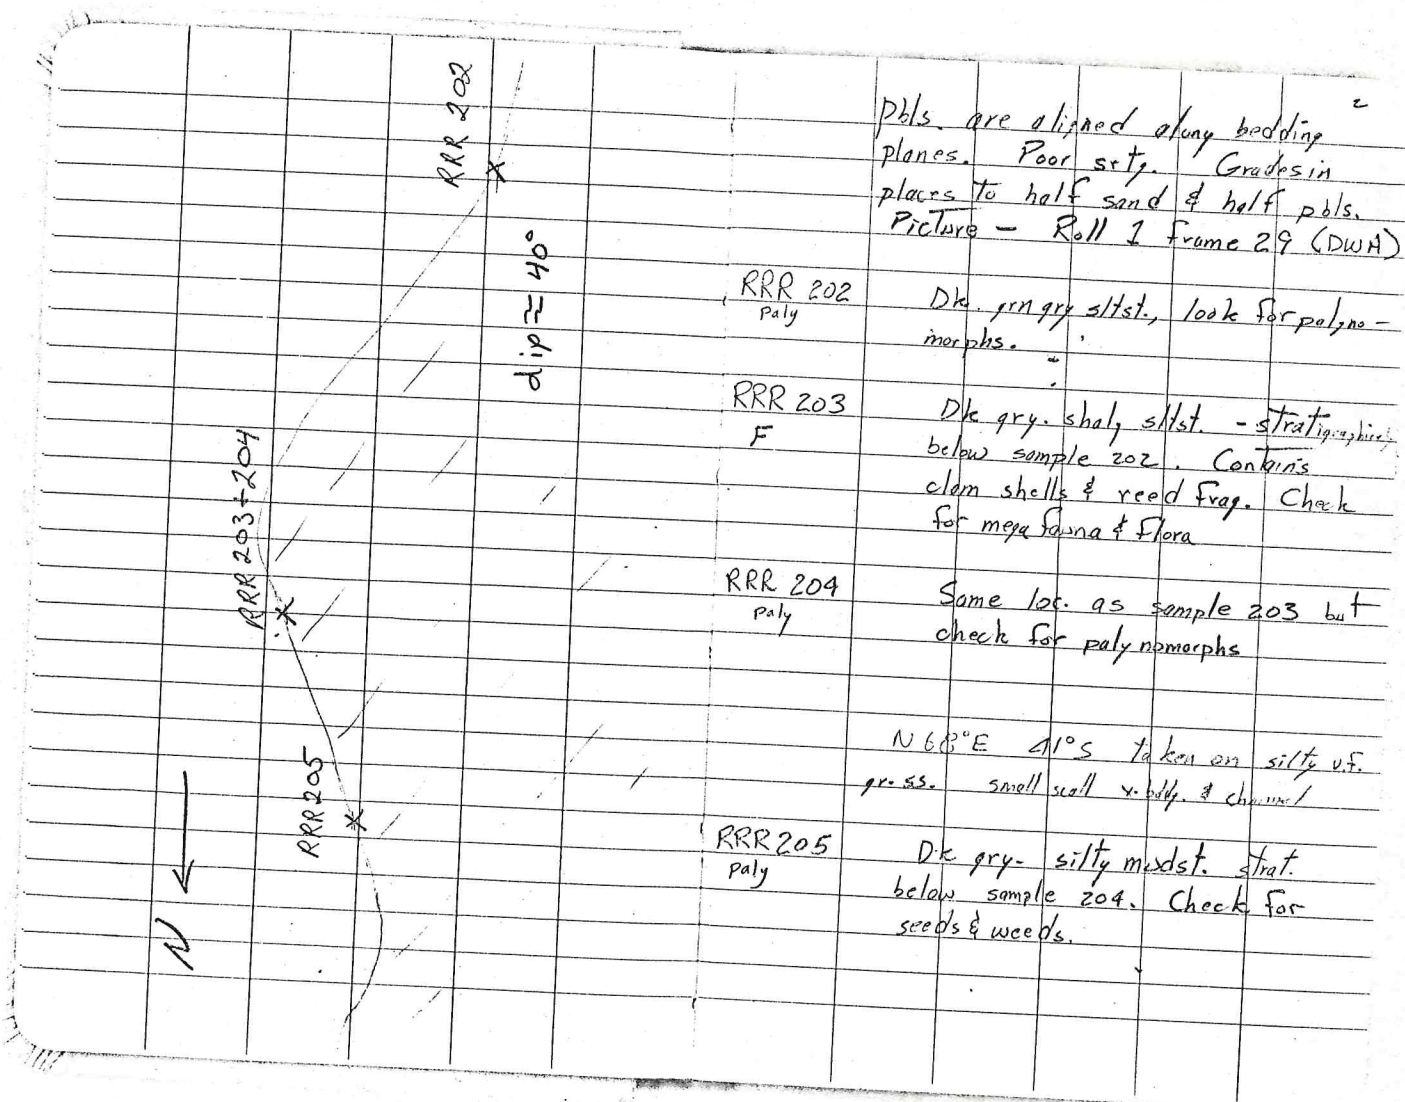 RRR 202
dip ≈ 40°
RRR 203+204
RRR 205
N
2
pbls. are aligned along bedding
planes. Poor srtg. Grades in
places to half sand & half pbls.
Picture - Roll 1 frame 29 (DWA)
RRR 202
paly
Dk. grn gry sltst., look for palyno-
morphs.
RRR 203
F
Dk gry. shaly sltst. - stratigraphically
below sample 202. Contains
clam shells & reed frag. Check
for mega fauna & flora
RRR 204
paly
Same loc. as sample 203 but
check for palynomorphs
N 68°E 41°S taken on silty v.f.
gr. ss. small scall x. bddg. & channel
RRR 205
paly
Dk gry- silty mudst. strat.
below sample 204. Check for
seeds & weeds.